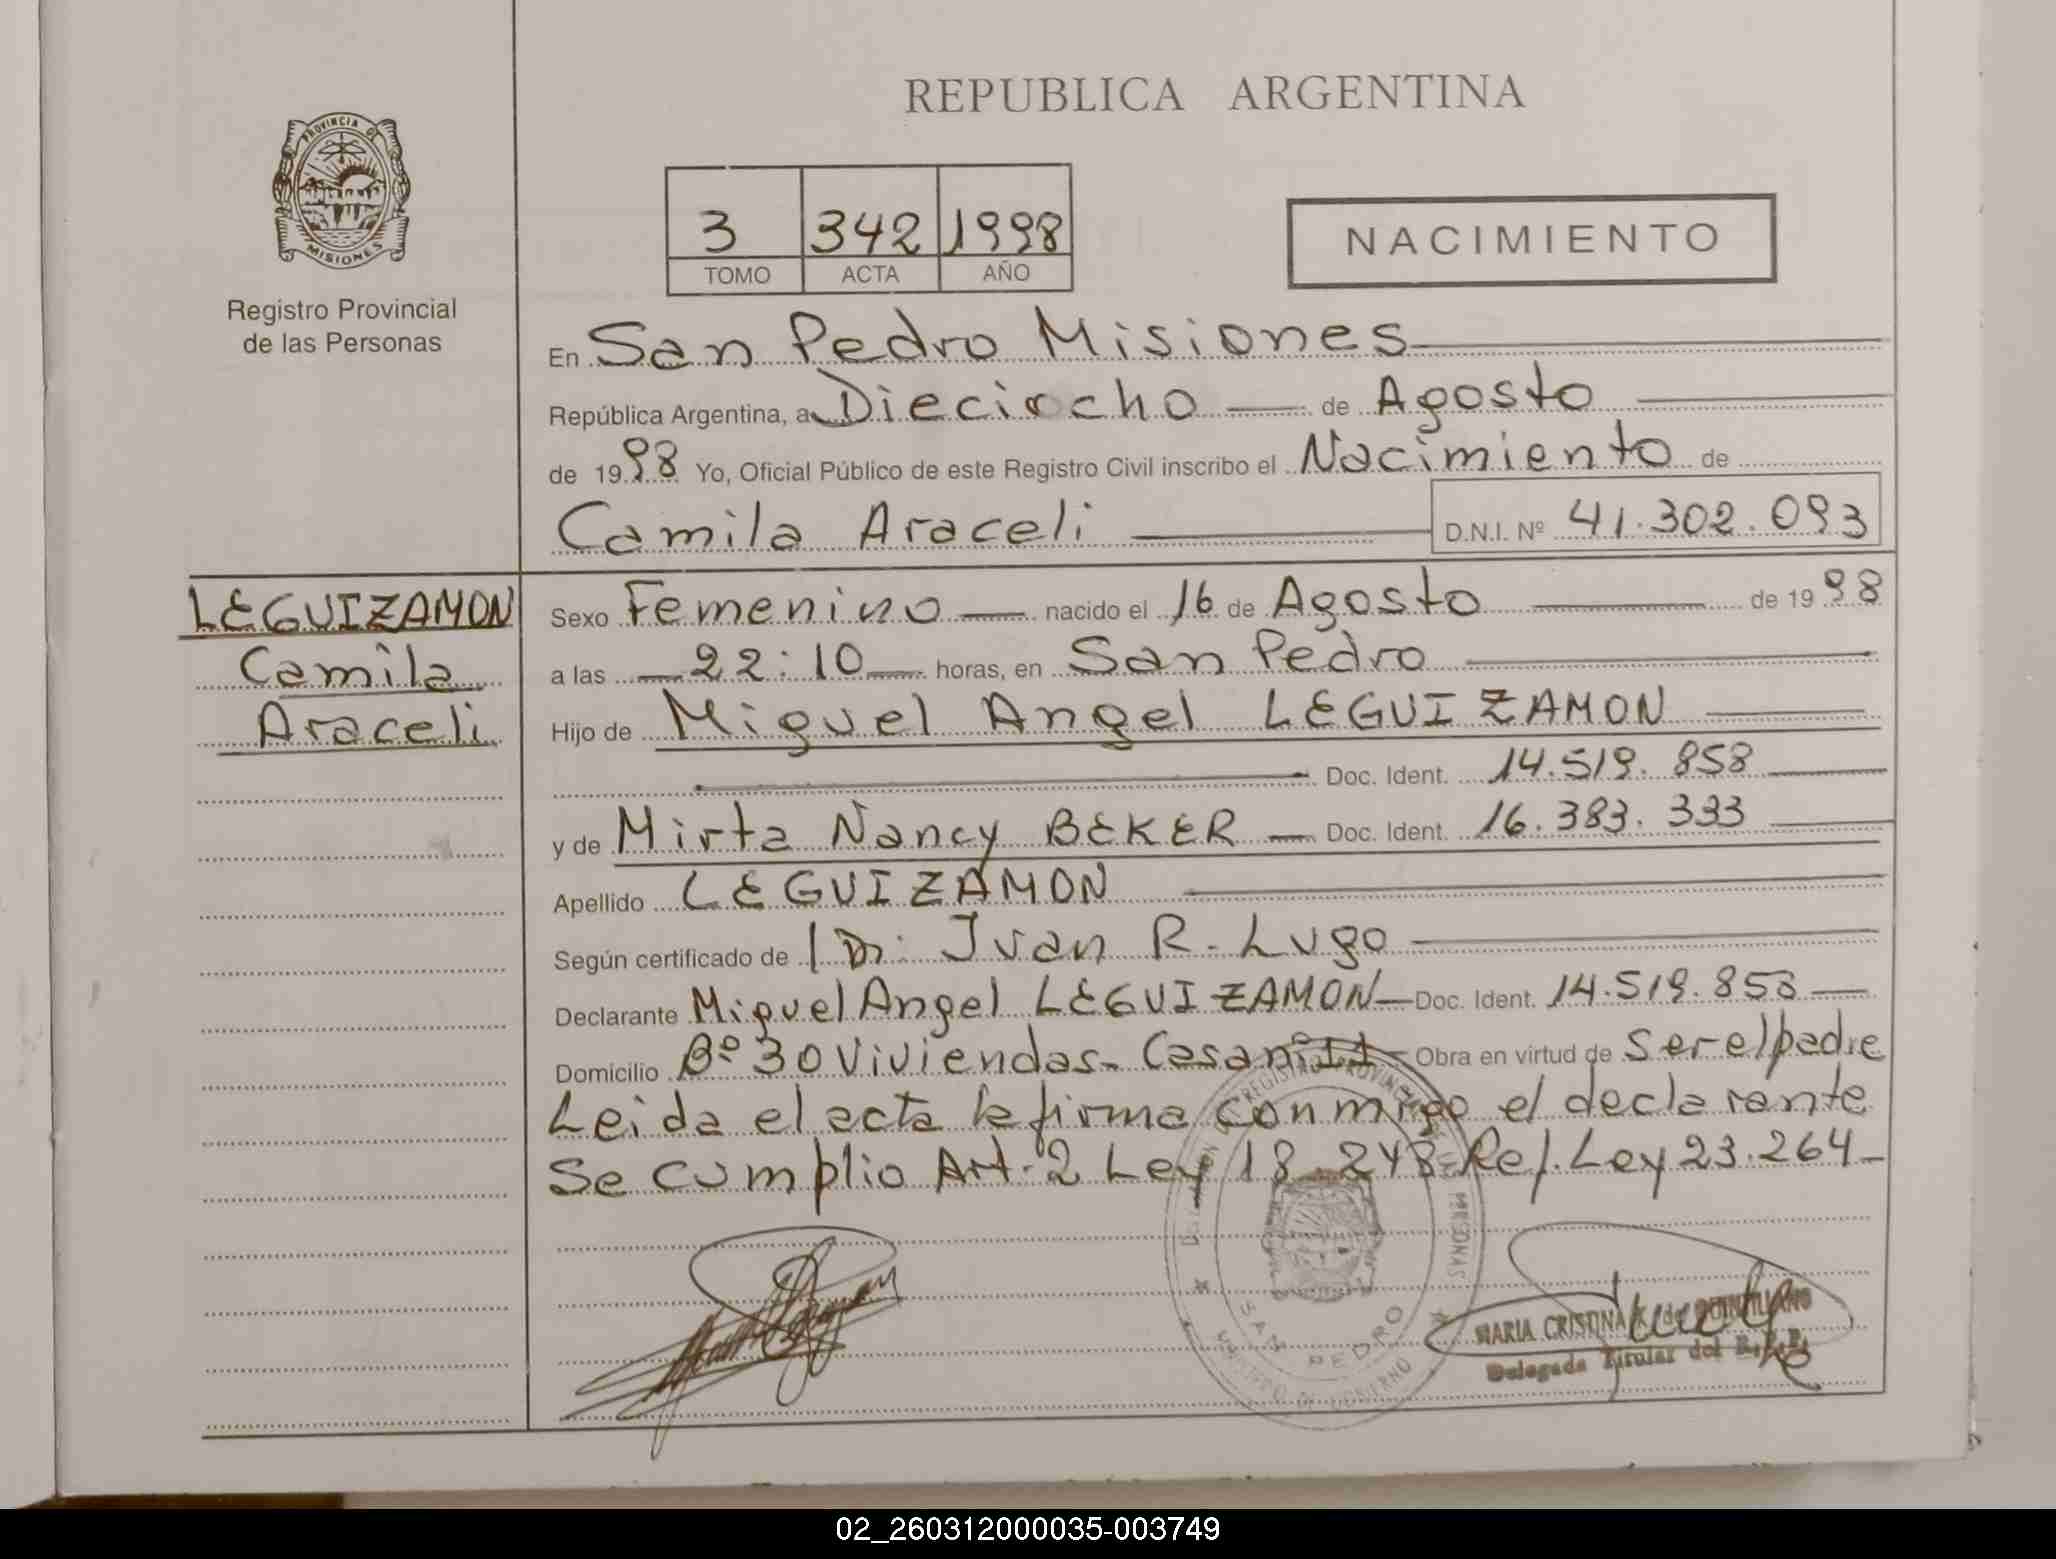 REPUBLICA ARGENTINA
PROVINCIA DE
MISIONES
Registro Provincial
de las Personas
3 342 1998
TOMO ACTA AÑO
NACIMIENTO
En San Pedro Misiones
República Argentina, a Dieciocho de Agosto
de 1998 Yo, Oficial Público de este Registro Civil inscribo el Nacimiento de
Camila Araceli D.N.I. Nº 41.302.093
LEGUIZAMON
Camila
Araceli
Sexo Femenino nacido el 16 de Agosto de 1998
a las 22:10 horas, en San Pedro
Hijo de Miguel Angel LEGUIZAMON
Doc. Ident. 14.519.858
y de Mirta Nancy BEKER Doc. Ident. 16.383.333
Apellido LEGUIZAMON
Según certificado de Dr. Ivan R. Lugo
Declarante Miguel Angel LEGUIZAMON Doc. Ident. 14.519.858
Domicilio Bº 30 Viviendas- Casa nº 11 Obra en virtud de ser el padre
Leida el acta la firma conmigo el declarante
Se cumplio Art. 2 Ley 18.248 Ref. Ley 23.264-
REGISTRO PROVINCIAL DE LAS PERSONAS
SAN PEDRO
MINISTERIO DE GOBIERNO
MARIA CRISTINA K. de QUINTILIANO
Delegada Titular del R.P.P.
02_260312000035-003749